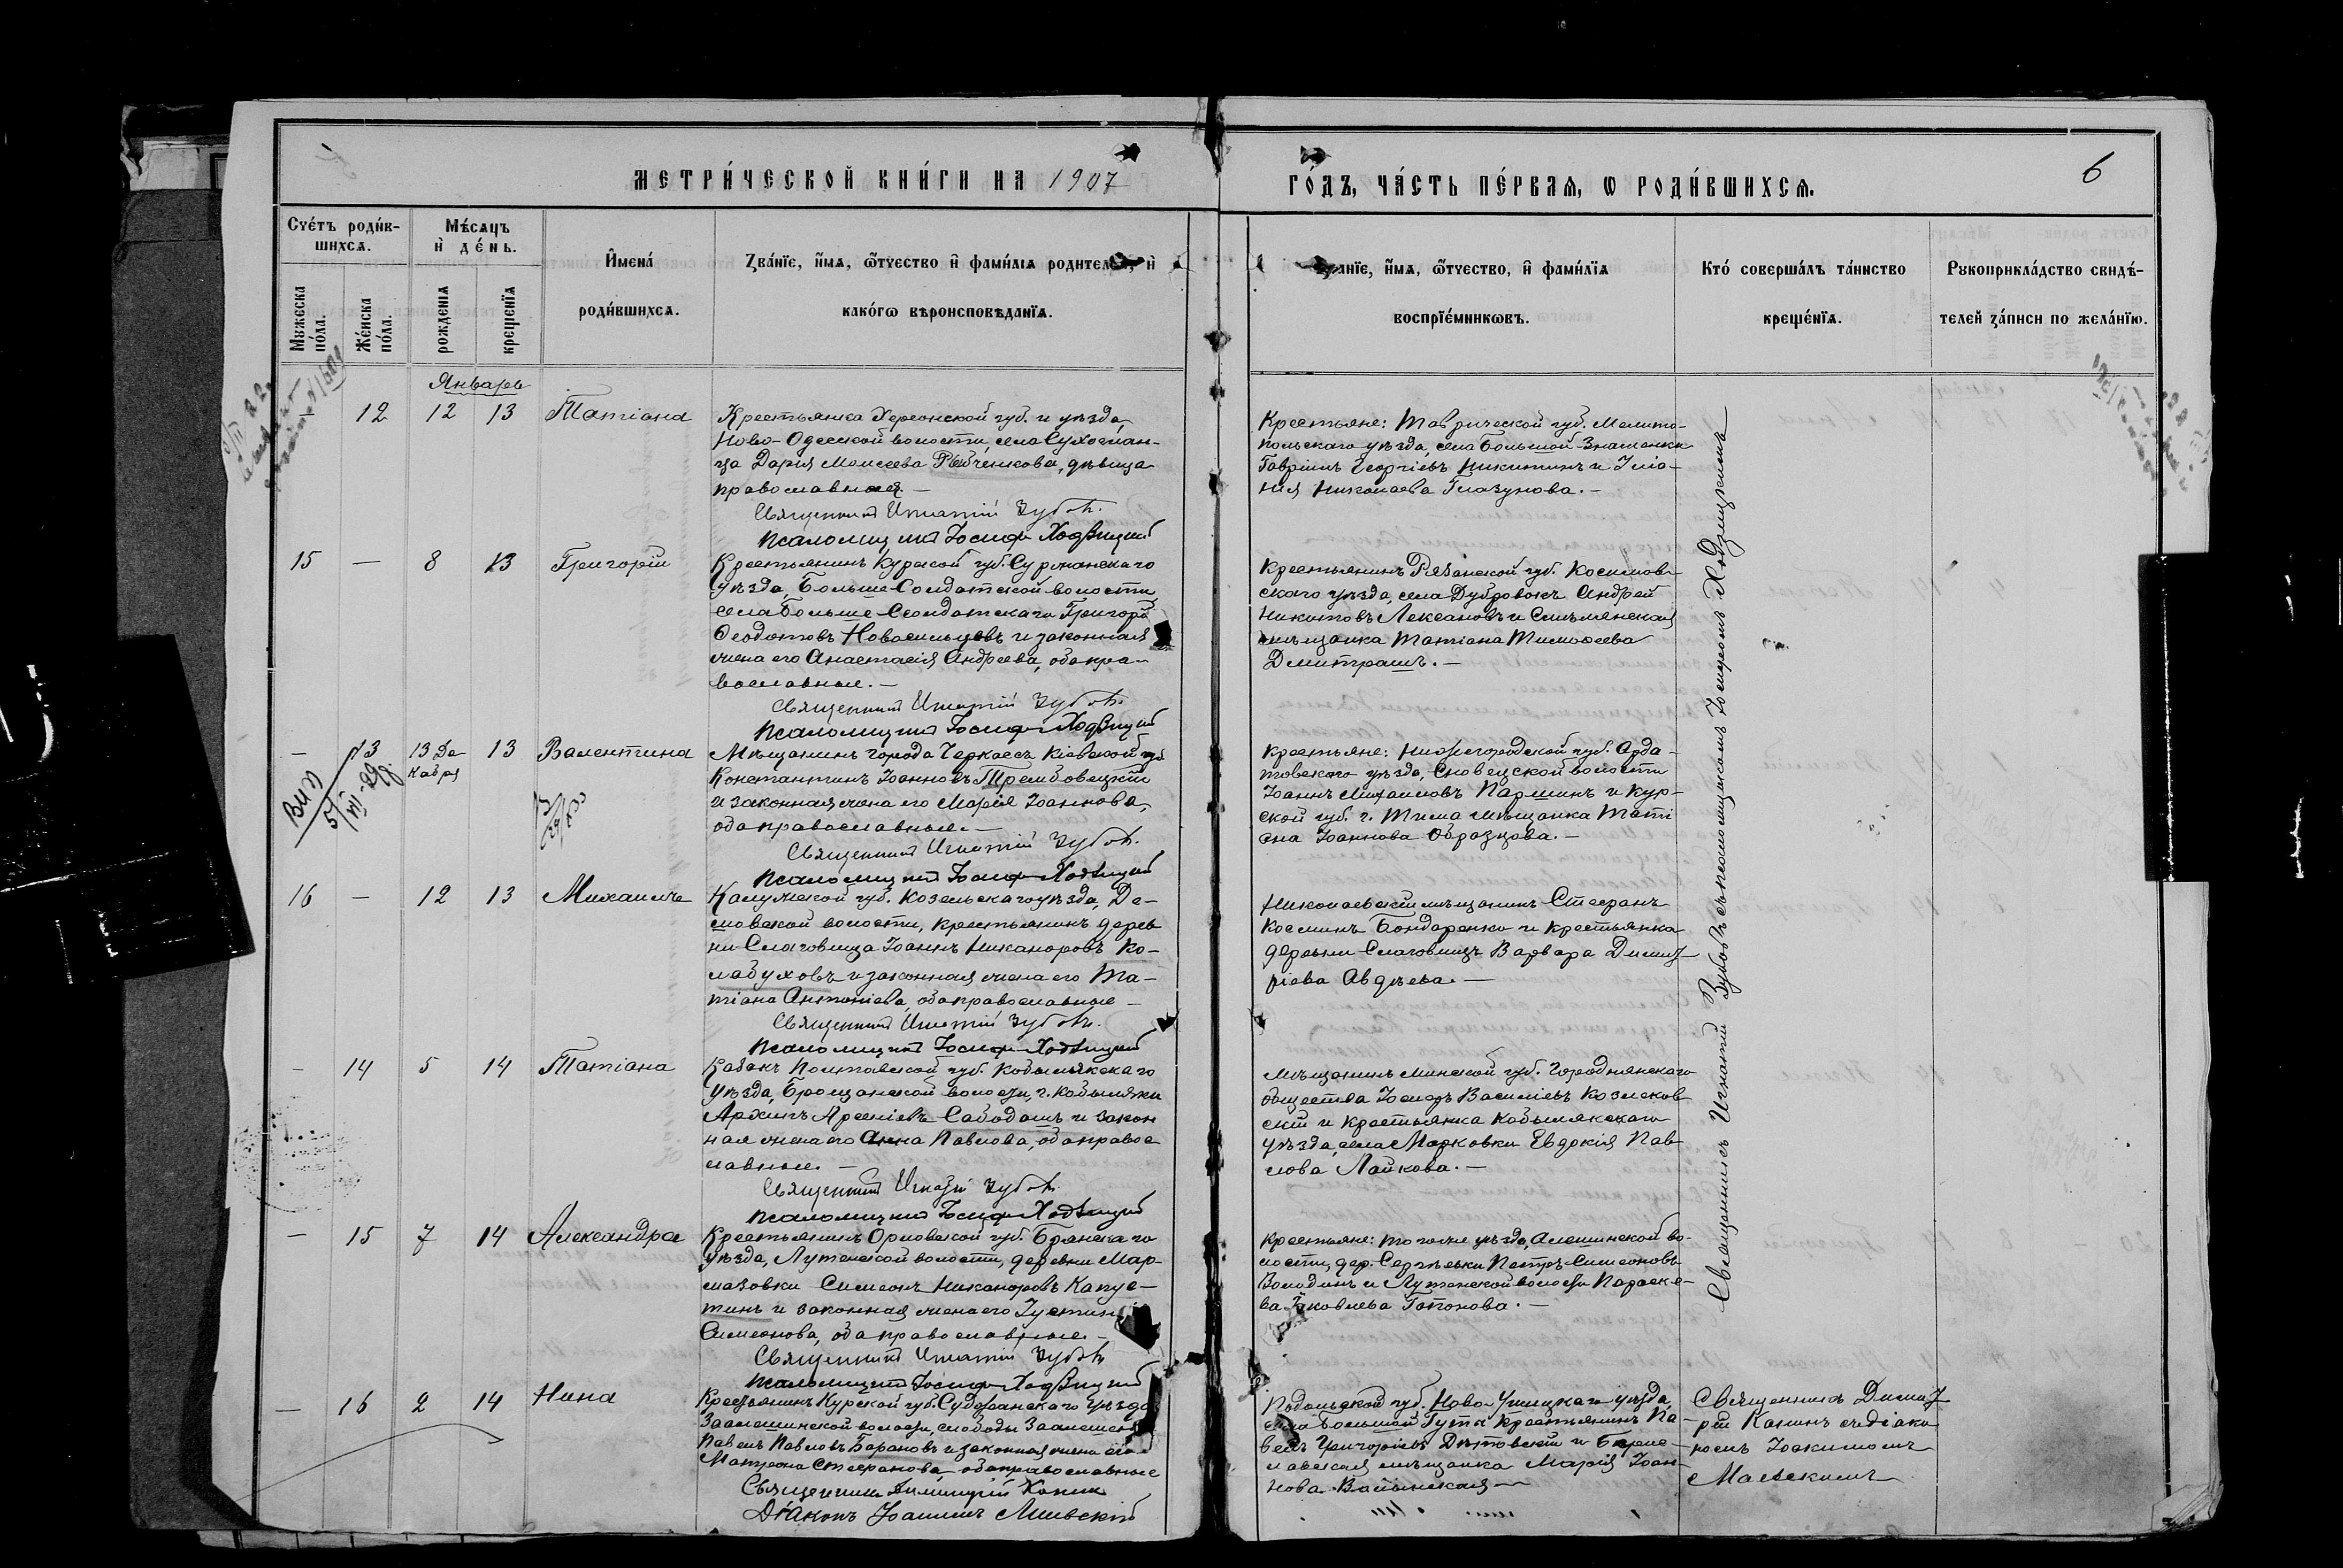 МЕТРИ́ЧЕСКОЙ КНИ́ГИ НА 1907
ГО́ДЪ, ЧА́СТЬ ПЕ́РВАѦ, Ѡ РОДИ́ВШИХСѦ.
6
Сче́тъ роди́в-
шихсѧ.
Мѣ́сѧцъ
и де́нь.
Мꙋжеска по́ла.
Же́нска по́ла.
рожденїѧ
крещенїѧ
Имена́
роди́вшихсѧ.
Зва́нїе, и́мѧ, ѻ҆́тчество и фами́лїѧ родителей, и
како́гѡ вѣроисповѣданїѧ.
Зва́нїе, и́мѧ, ѻ҆́тчество, и фами́лїѧ
воспрїе́мникѡвъ.
Кто́ соверша́лъ та́инство
креще́нїѧ.
Рꙋкоприкла́дство свидѣ́-
телей за́писи по жела́нїю.
Январь
— 12 12 13 Татіана
Крестьянка Херсонской губ. и уѣзда,
Ново-Одесской волости, села
Дарія Моисеева Рябченкова, дѣвица
православная —
Священникъ Игнатій Зубовъ.
Псаломщикъ Іосифъ Ходзицкій
Крестьяне: Таврической губ. Мелито-
польскаго уѣзда, села Большой Знаменки
Гавріилъ Георгіевъ Никитинъ и
Николаева Глазунова. —
15 — 8 13 Григорій
Крестьянинъ Курской губ. Суджанскаго
уѣзда, Больше-Солдатской волости
села Больше-Солдатскаго Григорій
Ѳеодотовъ Новосильцевъ и законная
жена его Анастасія Андреева, оба пра-
вославные. —
Священникъ Игнатій Зубовъ.
Псаломщикъ Іосифъ Ходзицкій
Крестьянинъ Рязанской губ. Касимов
скаго уѣзда, села Дубровокъ Андрей
Никитовъ Лексановъ и Смѣлянская
мѣщанка Татіана Тимоѳеева
Дмитрашъ. —
— 13 13 Де- 13 Валентина
кабря
Мѣщанинъ города Черкасъ Кіевской губ
Константинъ Іоанновъ Трембовецкій
и законная жена его Марія Іоаннова,
оба православные. —
Священникъ Игнатій Зубовъ.
Псаломщикъ Іосифъ Ходзицкій
Крестьяне: Нижегородской губ. Арда-
товскаго уѣзда, волости
Іоаннъ Михаиловъ Паршинъ и Кур-
ской губ. г. Тима мѣщанка Таті
ана Іоаннова Образцова. —
16 — 12 13 Михаилъ
Калужской губ. Козельскаго уѣзда, Де-
шовской волости, крестьянинъ дерев
ни Слаговища Іоаннъ Никаноровъ Ко-
лабуховъ и законная жена его Та-
тіана Антоніева, оба православные —
Священникъ Игнатій Зубовъ.
Псаломщикъ Іосифъ Ходзицкій
Николаевскій мѣщанинъ Стефанъ
Косминъ Бондаренко и крестьянка
деревни Слаговищъ Варвара Димит-
ріева Авдѣева. —
— 14 5 14 Татіана
Козакъ Полтавской губ. Кобылякскаго
уѣзда, волости, г. Кобыляки
Архипъ Арсеніевъ Сабодашъ и закон
ная жена его Анна Павлова, оба право
славные. —
Священникъ Игнатій Зубовъ.
Псаломщикъ Іосифъ Ходзицкій
Мѣщанинъ Минской губ. Городнянскаго
общества Іосифъ Василіевъ Козлов
скій и крестьянка Кобылякскаго
уѣзда, села Марковки Евдокія Пав-
лова Лайкова. —
— 15 7 14 Александра
Крестьянинъ Орловской губ. Брянскаго
уѣзда, Лутенской волости, деревни Мар-
мазовки Симеонъ Никаноровъ Капус-
тинъ и законная жена его Іустина
Симеонова, оба православные. —
Священникъ Игнатій Зубовъ
Псаломщикъ Іосифъ Ходзицкій
Крестьяне: того же уѣзда, Алешинской во-
лости, дер. Сергѣевки Петръ Симеоновъ
Володинъ и Лутенской волости Параске-
ва Іаковлева Гапонова. —
Священникъ Игнатій Зубовъ съ псаломщикомъ Іосифомъ Ходзицкимъ
— 16 2 14 Нина
Крестьянинъ Курской губ. Суджанскаго уѣзда
Заолешинской волости, слободы Заолешен
Павелъ Павловъ Барановъ и законная жена его
Матрона Стефанова, оба православные
Священникъ Димитрій Канинъ
Діаконъ Іоакимъ
Подольской губ. Ново-Ушицкаго уѣзда,
села Большой Гуты крестьянинъ Па-
велъ Григоріевъ и Берис-
лавская мѣщанка Марія Іоан-
нова Волынская —
Священникъ Димит-
рій Канинъ съ діако
номъ Іоакимомъ